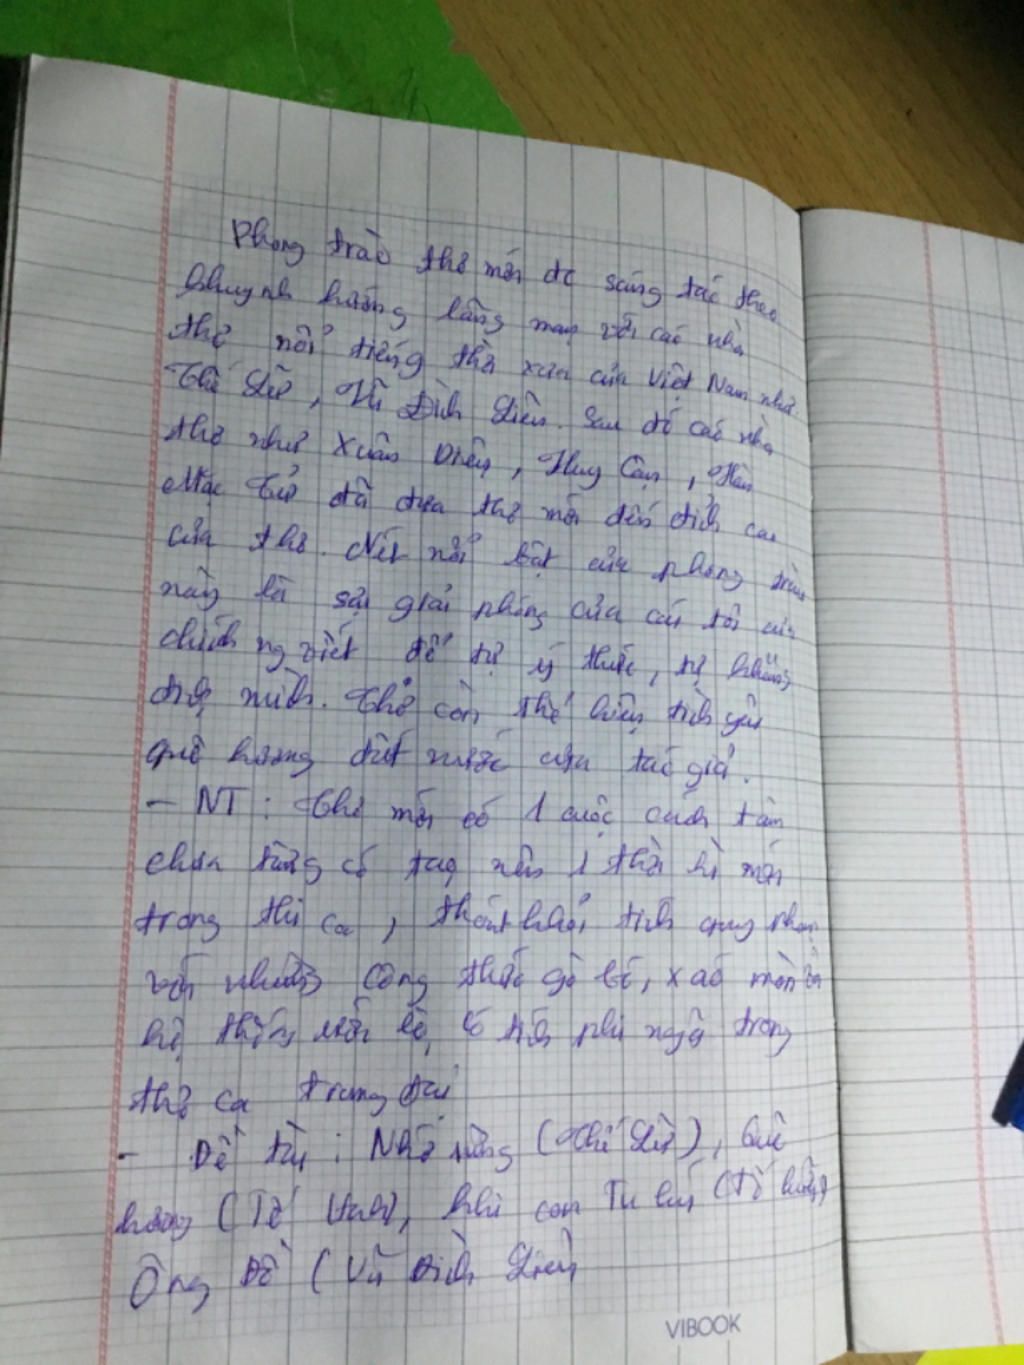 Phong trào thơ mới đc sáng tác theo
khuynh hướng lãng mạn với các nhà
thơ nổi tiếng thời xưa của Việt Nam như
Thế Lữ, Vũ Đình Liên. Sau đó các nhà
thơ như Xuân Diệu, Huy Cận, Hàn
Mặc Tử đã đưa thơ mới đến đỉnh cao
của thơ. Nét nổi bật của phong trào
này là sự giải phóng của cái tôi của
chính ng viết để tự ý thức, tự khẳng
định mình. Thơ còn thể hiện tình yêu
quê hương đất nước của tác giả.
- NT: Thơ mới có 1 cuộc cách tân
chưa từng có tạo nên 1 thời kì mới
trong thi ca, thoát khỏi tính quy phạm
với những công thức gò bó, xáo mòn
hệ thống ước lệ, có tính phi ngã trong
thơ ca trung đại
- Đề tài: Nhớ rừng (Thế Lữ), Quê
hương (Tế Hanh), khi con Tu hú (Tố hữu)
Ông Đồ (Vũ Đình Liên)
VIBOOK